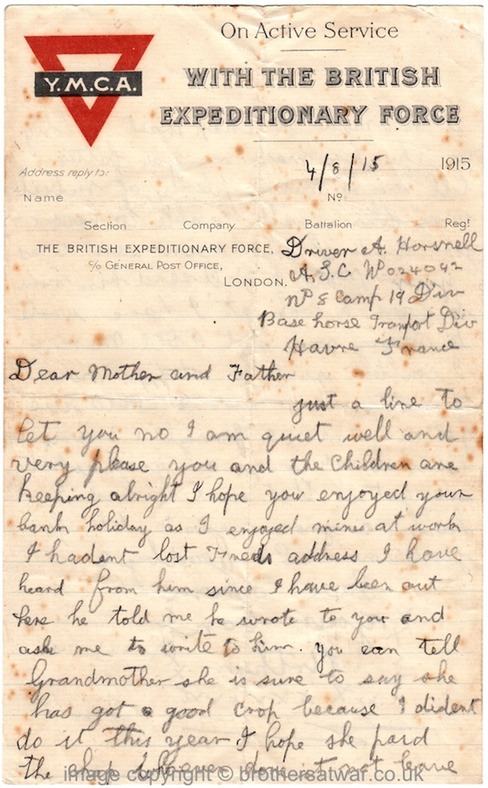 On Active Service
Y.M.C.A.
WITH THE BRITISH
EXPEDITIONARY FORCE
4/8/15 1915
Address reply to:
Name No
Section Company Battalion Regt
THE BRITISH EXPEDITIONARY FORCE,
C/o GENERAL POST OFFICE,
LONDON.
Driver A. Horsnell
A.S.C No 024042
No 8 Camp 19 Div
Base horse Tranport Div
Havre France
Dear Mother and Father
just a line to
let you no I am quiet well and
very please you and the Children are
keeping alright I hope you enjoyed your
bank holiday as I enjoyed mine at work
I hadent lost Freds address I have
heard from him since I have been out
here he told me he wrote to you and
ask me to write to him. you can tell
Grandmother she is sure to say she
has got a good crop because I dident
do it this year I hope she paid
the chap done it not leave
image copyright © brothersatwar.co.uk